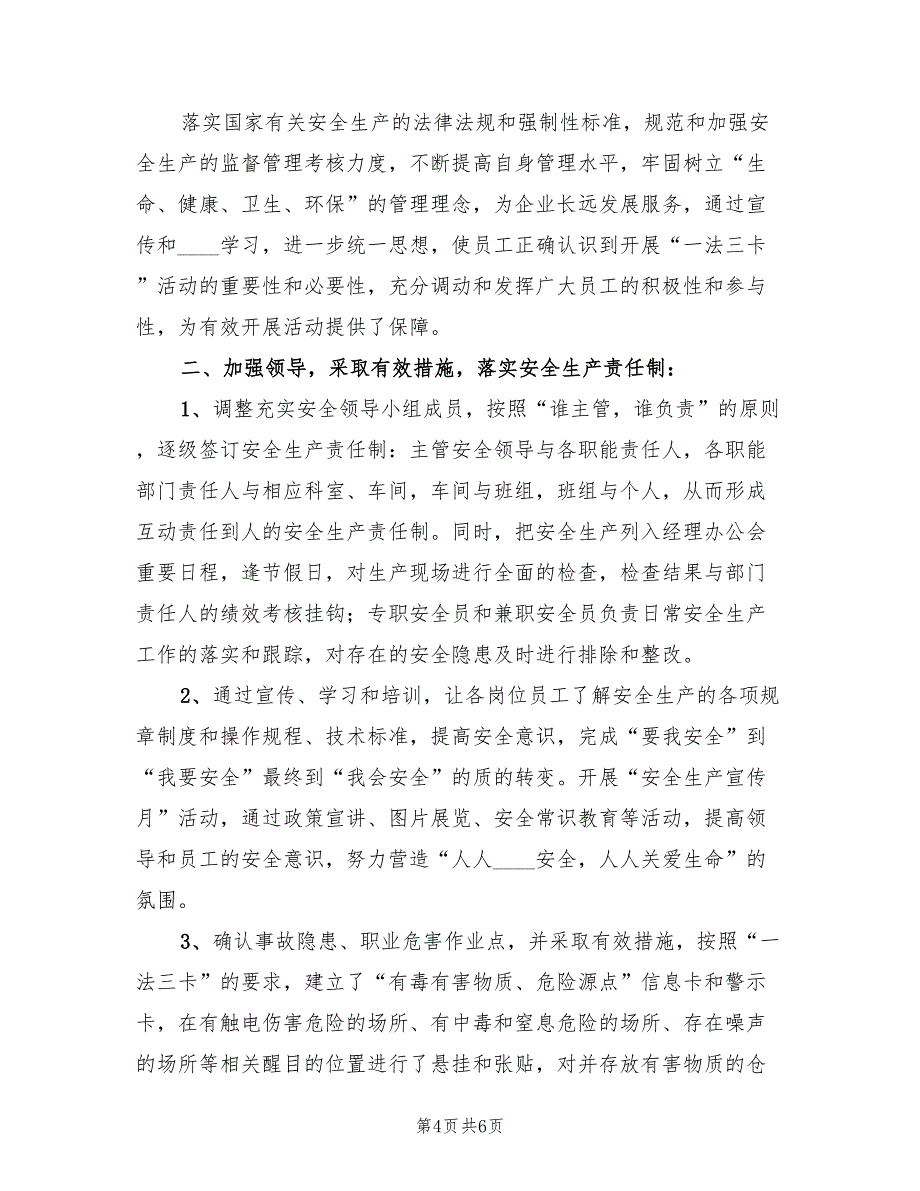 落实国家有关安全生产的法律法规和强制性标准，规范和加强安
全生产的监督管理考核力度，不断提高自身管理水平，牢固树立“生
命、健康、卫生、环保”的管理理念，为企业长远发展服务，通过宣
传和____学习，进一步统一思想，使员工正确认识到开展“一法三卡
”活动的重要性和必要性，充分调动和发挥广大员工的积极性和参与
性，为有效开展活动提供了保障。
二、加强领导，采取有效措施，落实安全生产责任制：
1、调整充实安全领导小组成员，按照“谁主管，谁负责”的原则
，逐级签订安全生产责任制：主管安全领导与各职能责任人，各职能
部门责任人与相应科室、车间，车间与班组，班组与个人，从而形成
互动责任到人的安全生产责任制。同时，把安全生产列入经理办公会
重要日程，逢节假日，对生产现场进行全面的检查，检查结果与部门
责任人的绩效考核挂钩；专职安全员和兼职安全员负责日常安全生产
工作的落实和跟踪，对存在的安全隐患及时进行排除和整改。
2、通过宣传、学习和培训，让各岗位员工了解安全生产的各项规
章制度和操作规程、技术标准，提高安全意识，完成“要我安全”到
“我要安全”最终到“我会安全”的质的转变。开展“安全生产宣传
月”活动，通过政策宣讲、图片展览、安全常识教育等活动，提高领
导和员工的安全意识，努力营造“人人____安全，人人关爱生命”的
氛围。
3、确认事故隐患、职业危害作业点，并采取有效措施，按照“一
法三卡”的要求，建立了“有毒有害物质、危险源点”信息卡和警示
卡，在有触电伤害危险的场所、有中毒和窒息危险的场所、存在噪声
的场所等相关醒目的位置进行了悬挂和张贴，对并存放有害物质的仓
第4页共6页